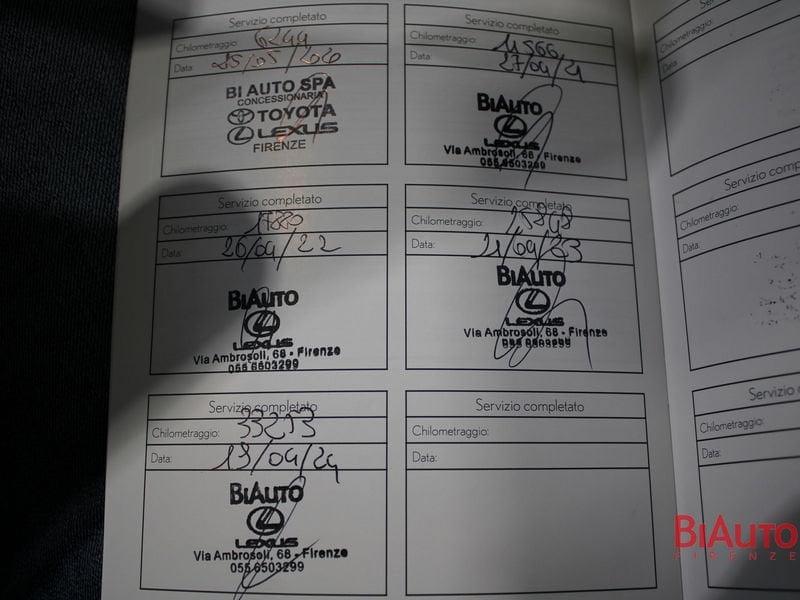 Servizio completato
Chilometraggio: 6244
Data: 25/05/2020
BI AUTO SPA
CONCESSIONARIA
TOYOTA
LEXUS
FIRENZE
Servizio completato
Chilometraggio: 11566
Data: 27/04/21
BIAUTO
LEXUS
Via Ambrosoli, 68 - Firenze
055 6503299
Servizio completato
Chilometraggio: 17880
Data: 26/04/22
BIAUTO
LEXUS
Via Ambrosoli, 68 - Firenze
055 6503299
Servizio completato
Chilometraggio: 25848
Data: 21/04/23
BIAUTO
LEXUS
Via Ambrosoli, 68 - Firenze
Servizio completato
Chilometraggio: 33253
Data: 19/04/24
BIAUTO
LEXUS
Via Ambrosoli, 68 - Firenze
055 6503299
Servizio completato
Chilometraggio:
Data:
Chilometraggio:
Data:
Servizio
Chilometraggio:
Data:
Servizio
Chilometraggio:
Data:
BIAUTO
FIRENZE